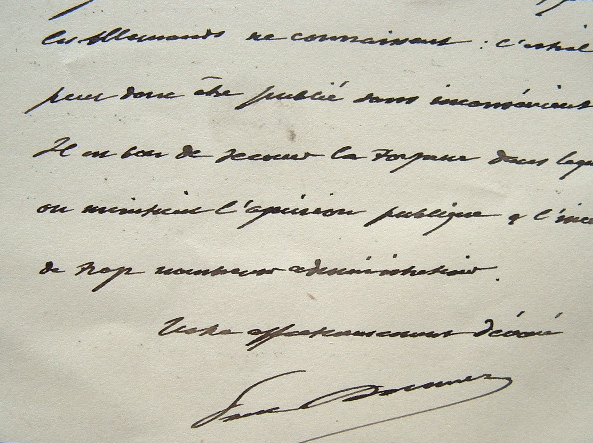 les Allemands ne connaissent : l'article
peut donc être publié sans inconvénient
Il est bon de secouer la torpeur dans laquelle
on maintient l'opinion publique & l'
de trop nombreux administrateurs.
Votre affectueusement dévoué
Paul Doumer